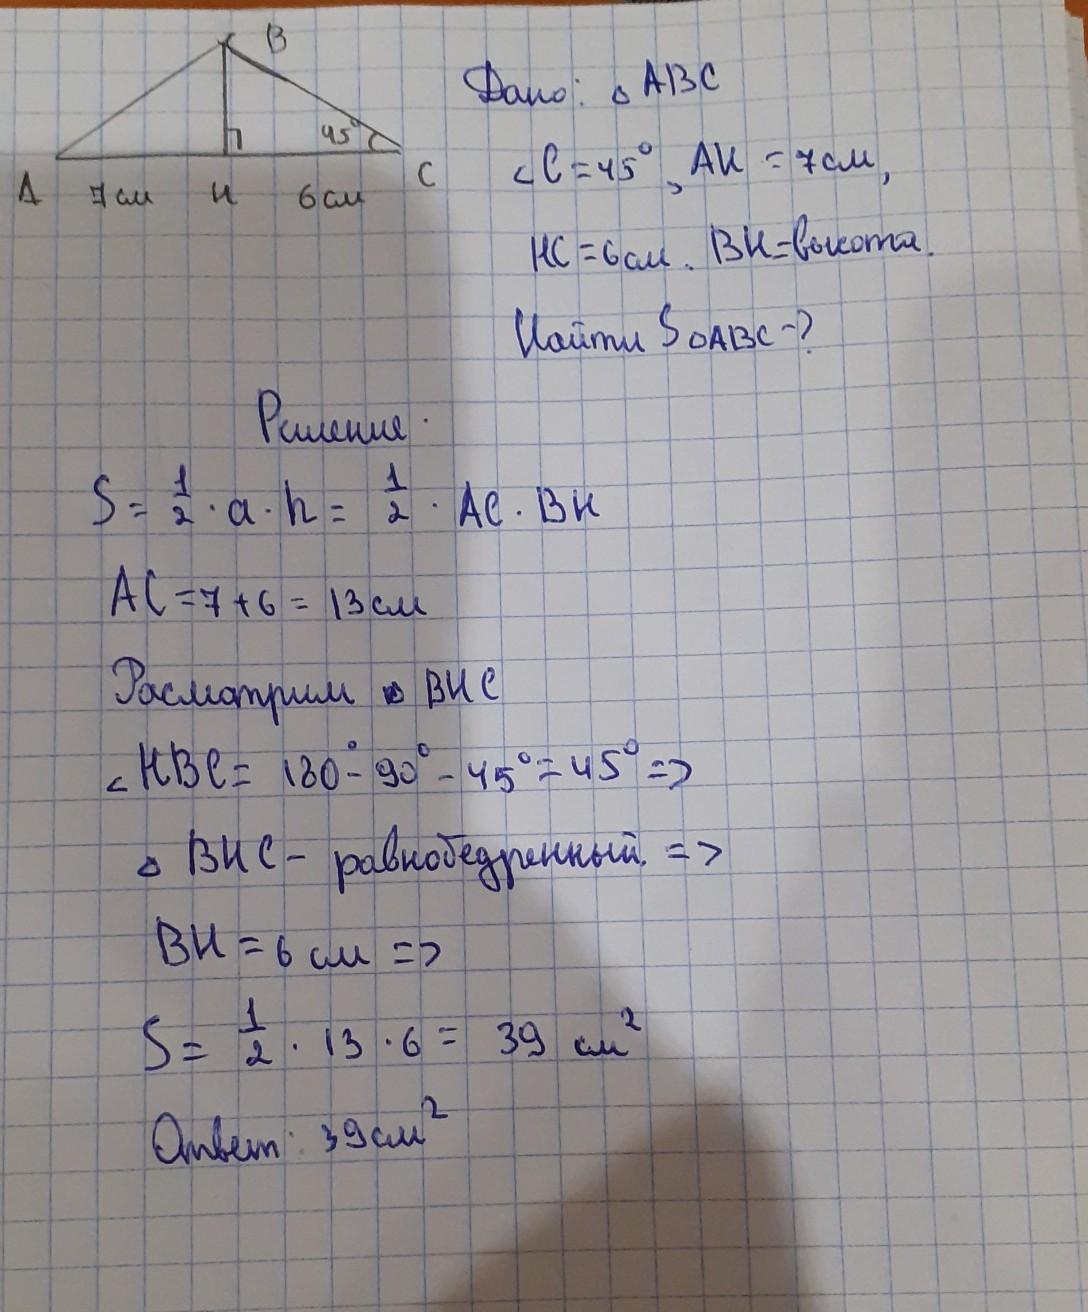 B
45°
A 7см H 6см C
Дано: △ABC
∠C=45°, AH = 7см,
HC=6см. BH=высота.
Найти S△ABC-?
Решение.
S = 1/2 · a · h = 1/2 · AC · BH
AC = 7 + 6 = 13 см
Расмотрим △ BHC
∠HBC = 180° - 90° - 45° = 45° =>
△ BHC - равнобедренный. =>
BH = 6 см =>
S = 1/2 · 13 · 6 = 39 см²
Ответ: 39см²